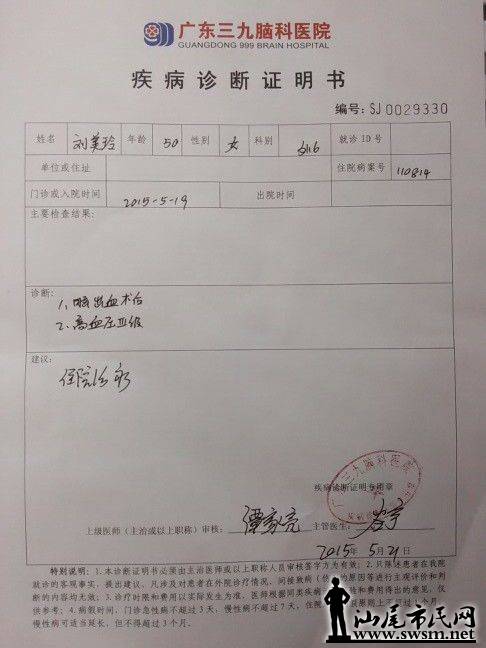 广东三九脑科医院
GUANGDONG 999 BRAIN HOSPITAL
疾病诊断证明书
编号: SJ 0029330
姓名 刘美玲 年龄 50 性别 女 科别 就诊ID号
单位或住址 住院病案号 110814
门诊或入院时间 2015-5-19 出院时间
主要检查结果:
诊断:
1、脑出血术后
2、高血压Ⅲ级
建议:
住院治疗
疾病诊断证明专用章
上级医师(主治或以上职称)审核: 主管医生:
2015年 5月21日
特别说明: 1.本诊断证明书必须由主治医师或以上职称人员审核签字方为有效。2.只陈述患者在我院
就诊的客观事实,提出建议。凡涉及对患者在外院诊疗情况、间接致病(伤)的原因等进行主观评价和判
断的内容均无效; 3.诊疗时间和费用以实际发生为准,医师根据同类疾病 经验和费用得出的意见,仅
供参考; 4.病假时间,门诊急性病不超过3天,慢性病不超过7天,住院 原则上不超过1个月,
慢性病可适当延长,但不得超过3个月。
汕尾市民网
www.swsm.net